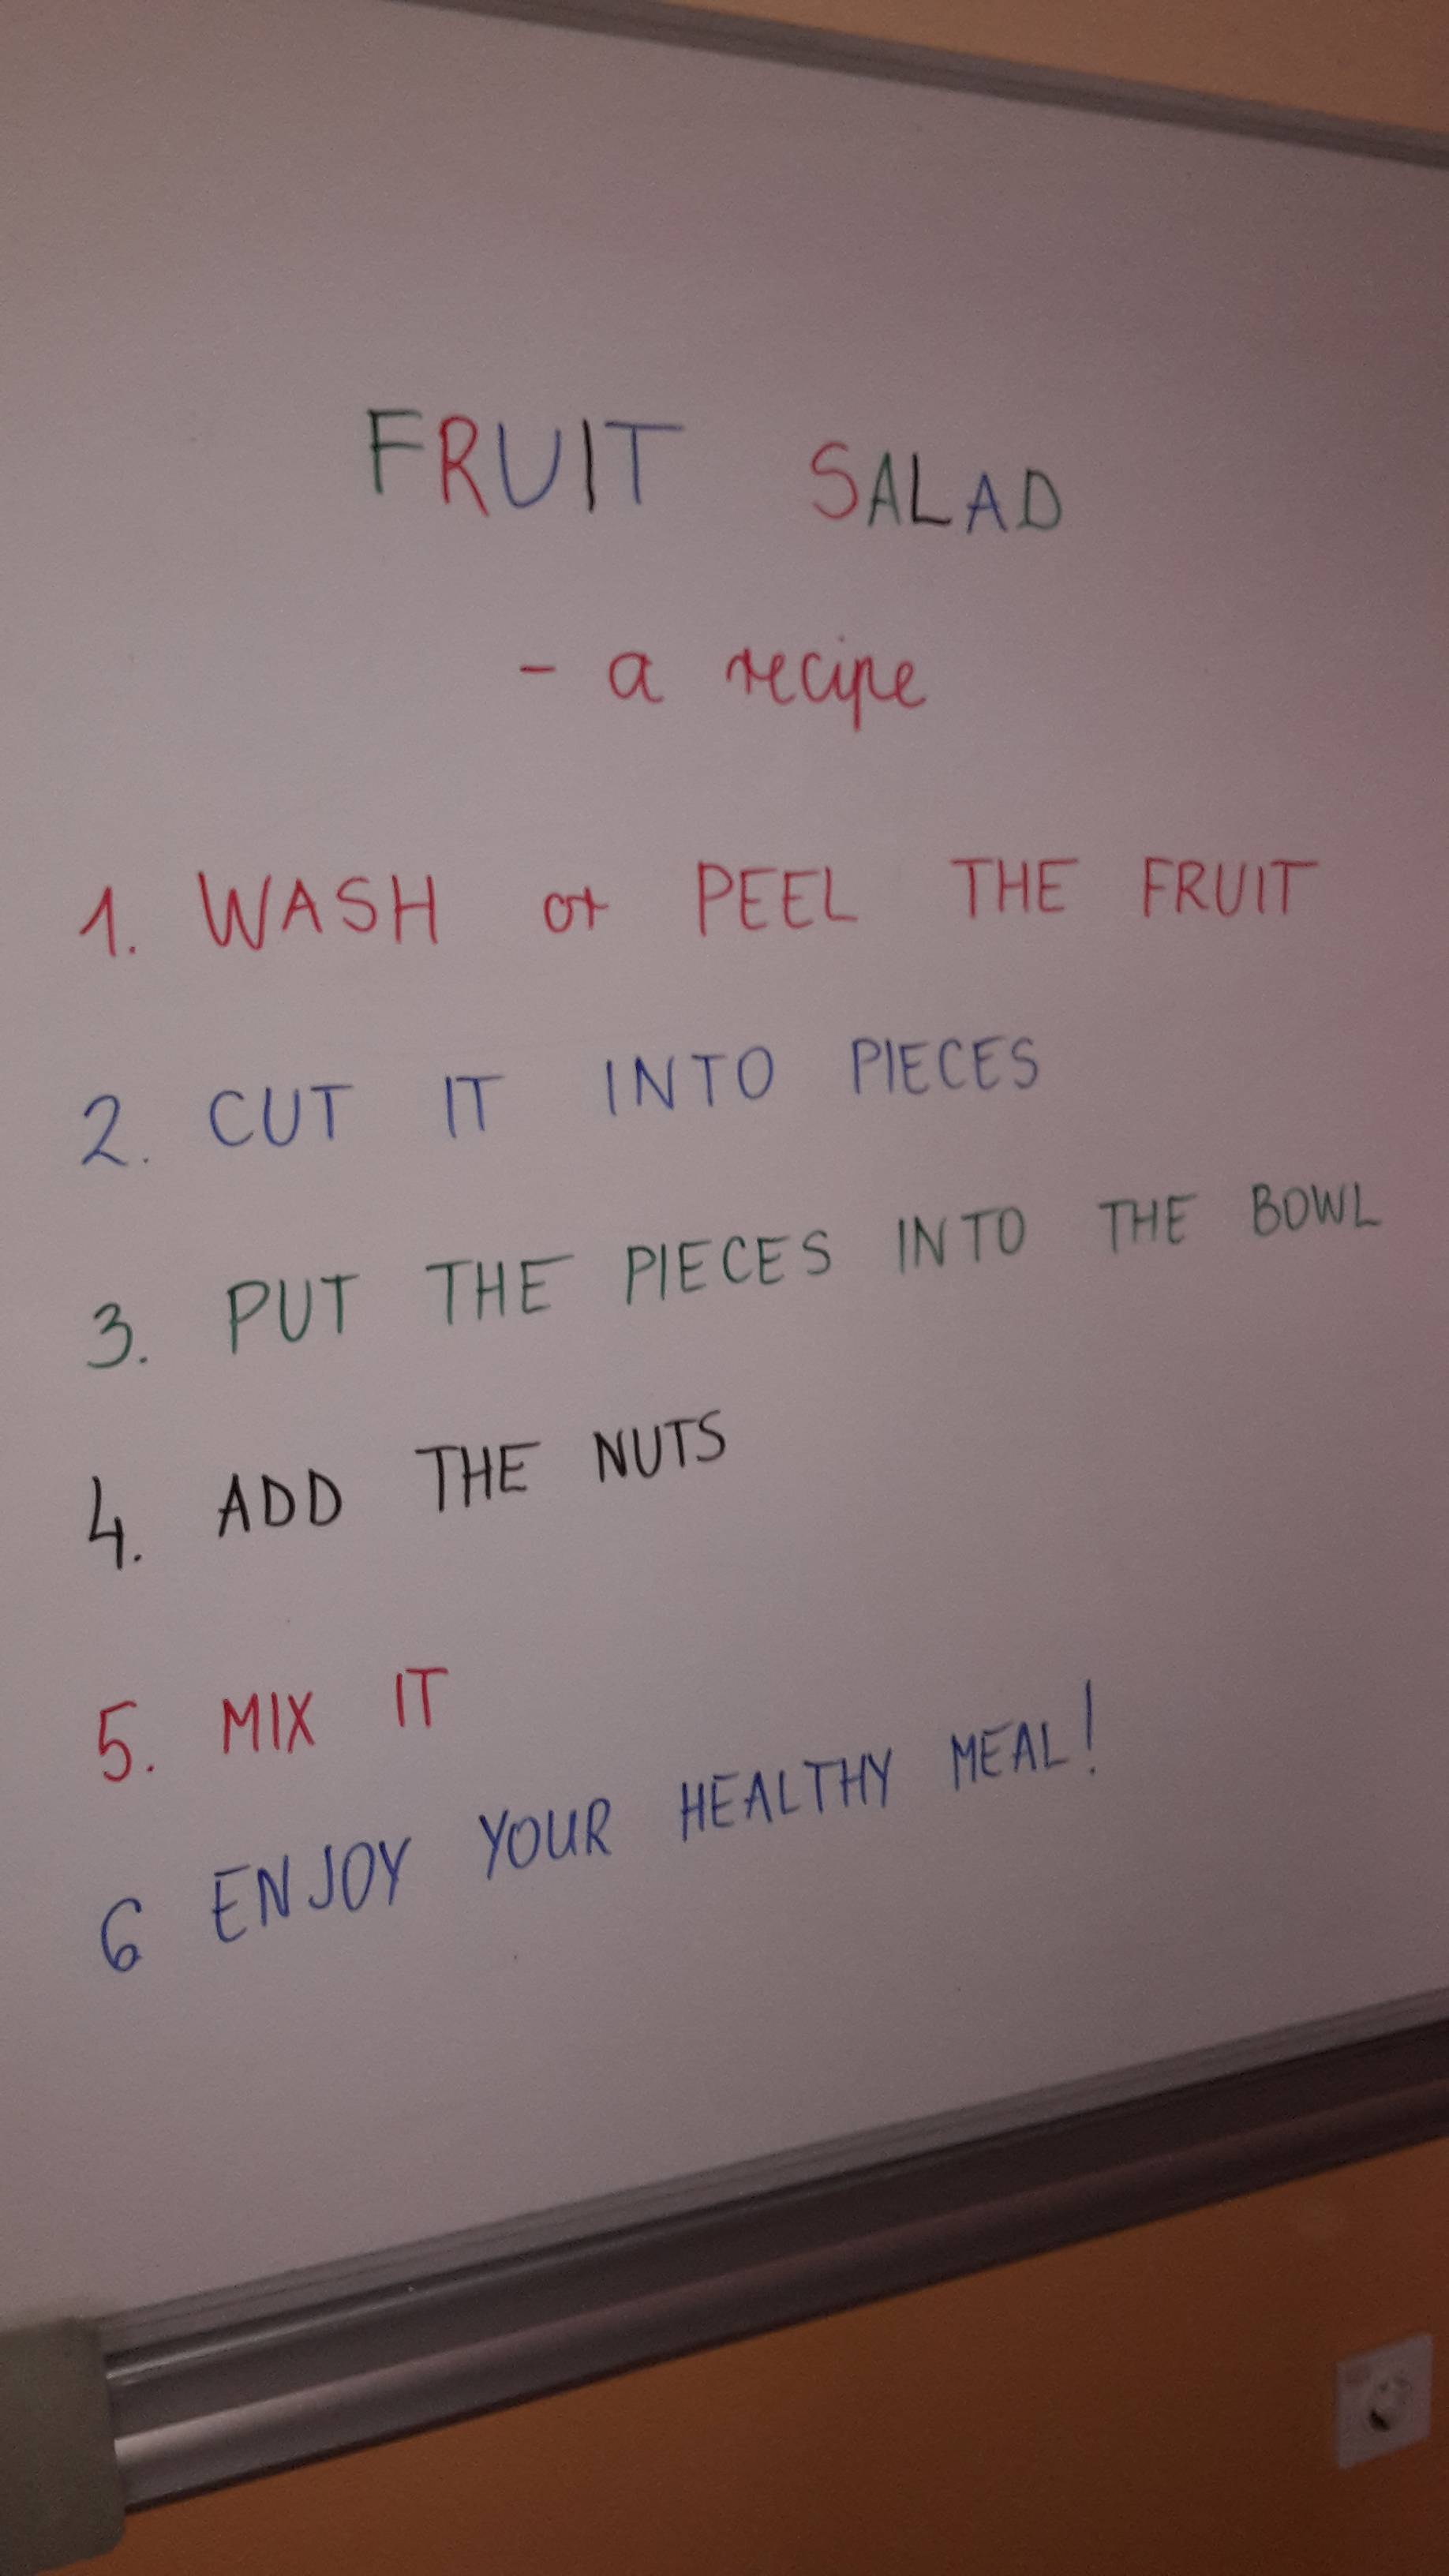 FRUIT SALAD
- a recipe
1. WASH or PEEL THE FRUIT
2. CUT IT INTO PIECES
3. PUT THE PIECES INTO THE BOWL
4. ADD THE NUTS
5. MIX IT
6 ENJOY YOUR HEALTHY MEAL!